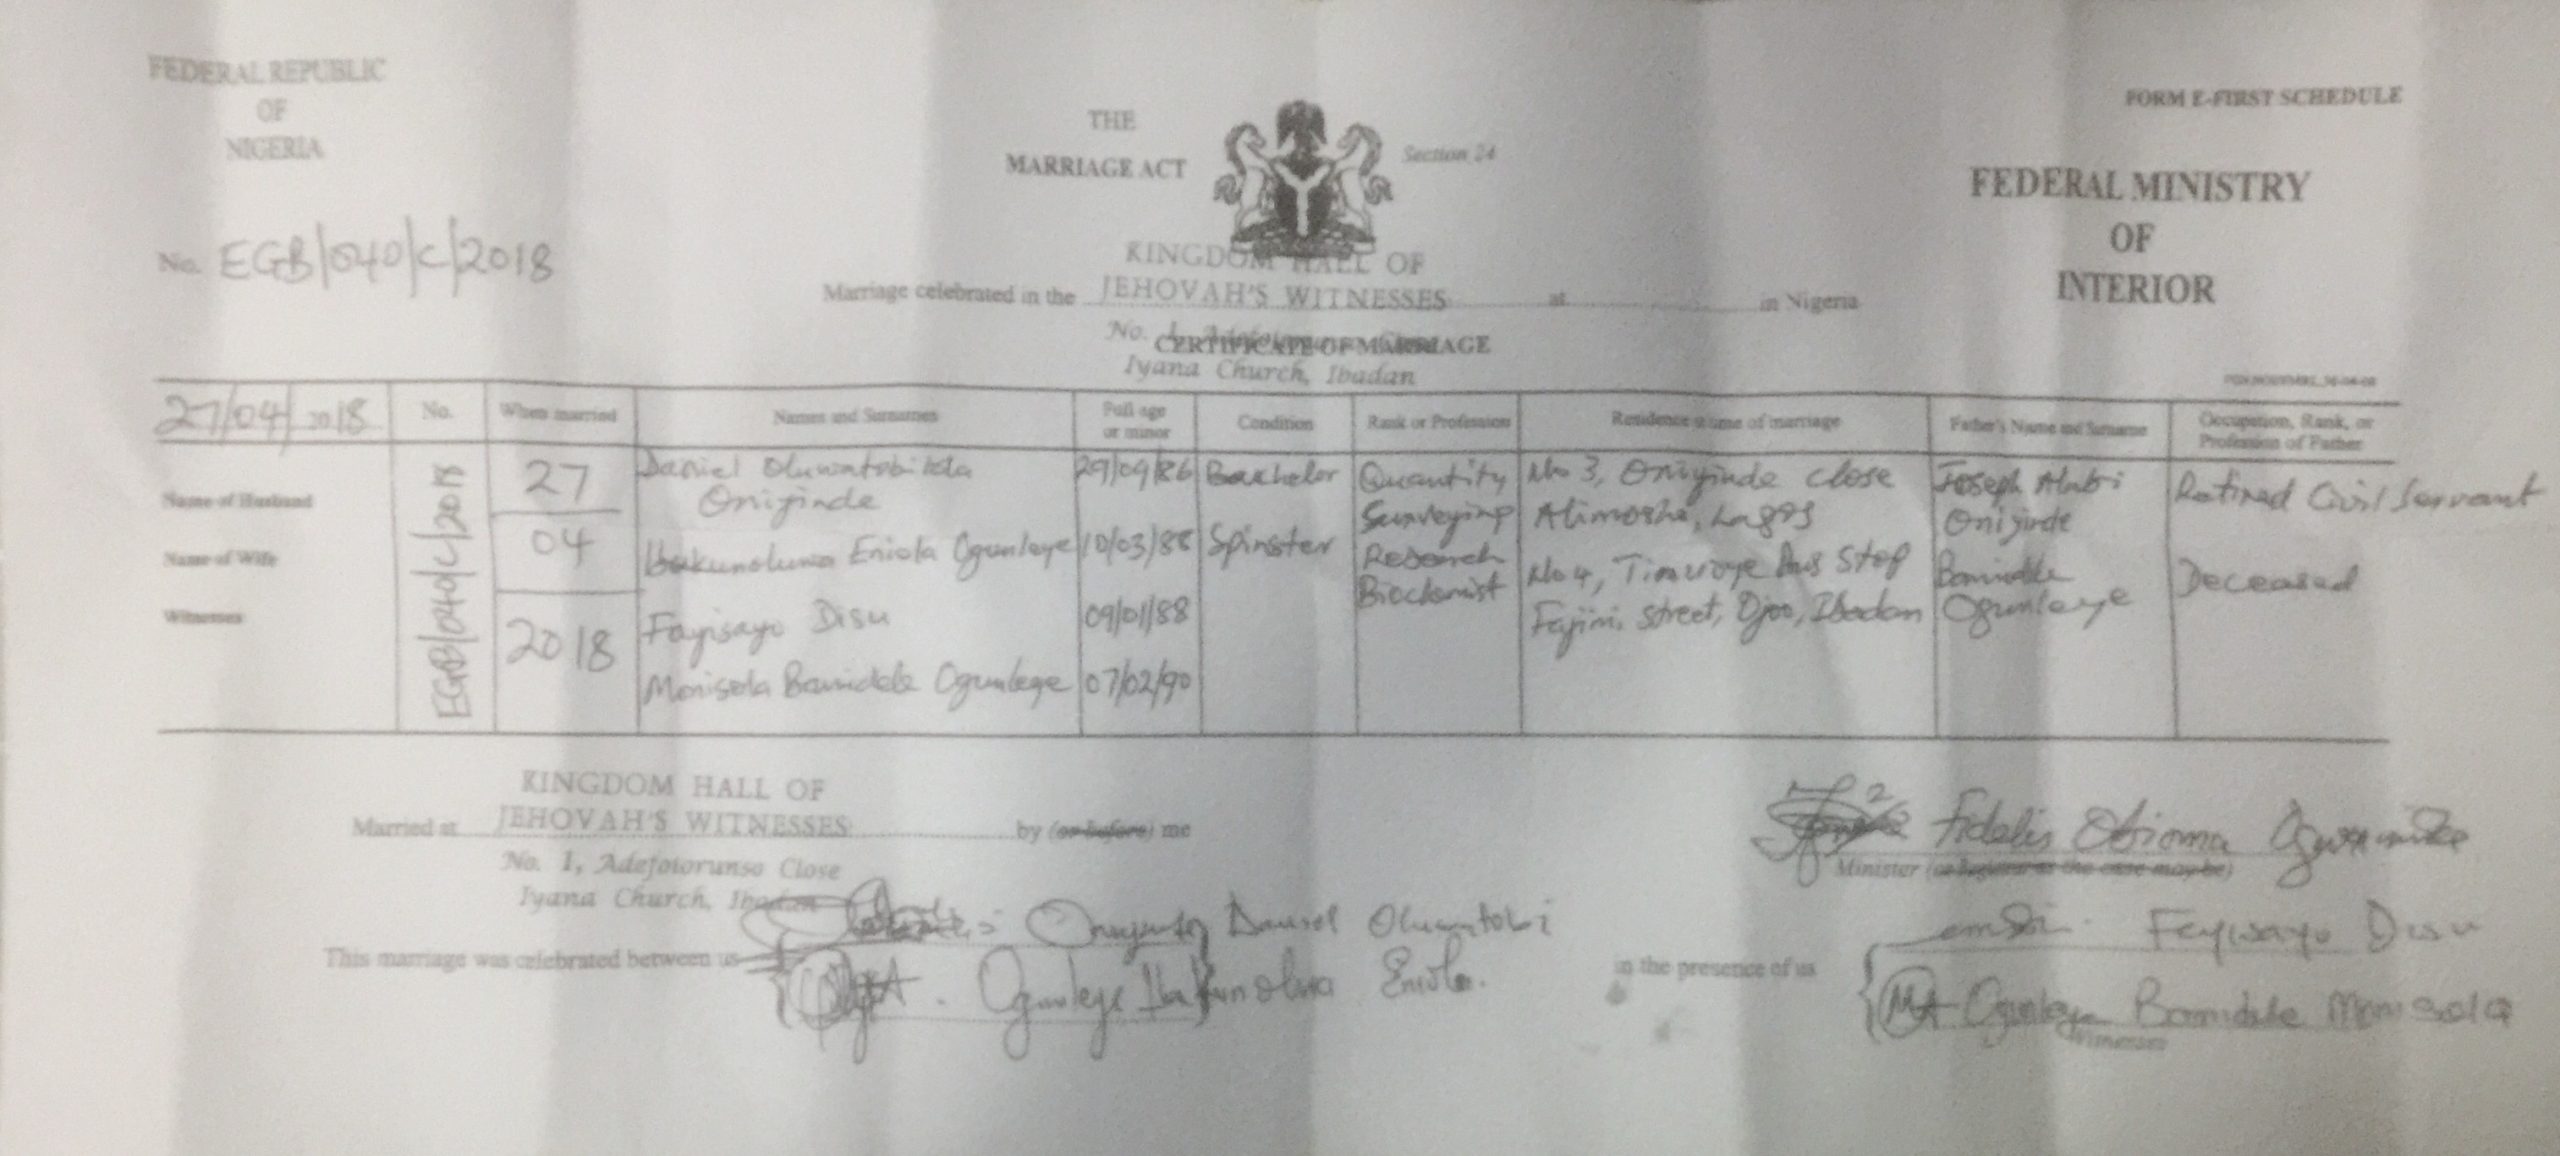 FEDERAL REPUBLIC
OF
NIGERIA
No. EGB/040/C/2018
THE
MARRIAGE ACT
Section 24
FORM E-FIRST SCHEDULE
FEDERAL MINISTRY
OF
INTERIOR
KINGDOM HALL OF
Marriage celebrated in the JEHOVAH'S WITNESSES at in Nigeria
No. 1,
CERTIFICATE OF MARRIAGE
Iyana Church, Ibadan
27/04/2018 No. When married Names and Surnames Full age or minor Condition Rank or Profession Residence time of marriage Father's Name and Surname Occupation, Rank, or Profession of Father
EGB/040/C/2018
27
04
2018
Name of Husband Daniel Onijinde 29/09/86 Bachelor Quantity Surveying No 3, Onijinde Close Alimosho, Lagos Joseph Alabi Onijinde Retired Civil Servant
Name of Wife Ibukunoluwa Eniola Ogunleye 10/03/88 Spinster Research Biochemist No 4, Bus Stop Street, Ojoo, Ibadan Bamidele Ogunleye Deceased
Witnesses Fayisayo Disu 09/01/88
Monisola Bamidele Ogunleye 07/02/90
KINGDOM HALL OF
Married at JEHOVAH'S WITNESSES by (or before) me
No. 1, Adefolorunso Close
Iyana Church, Ibadan
Fidelis Obioma
Minister (or Registrar as the case may be)
This marriage was celebrated between us Daniel Oluwatobi
Ogunleye Ibukunoluwa Eniola.
in the presence of us
Feyisayo Disu
Ogunleye Bamidele Monisola
Witnesses